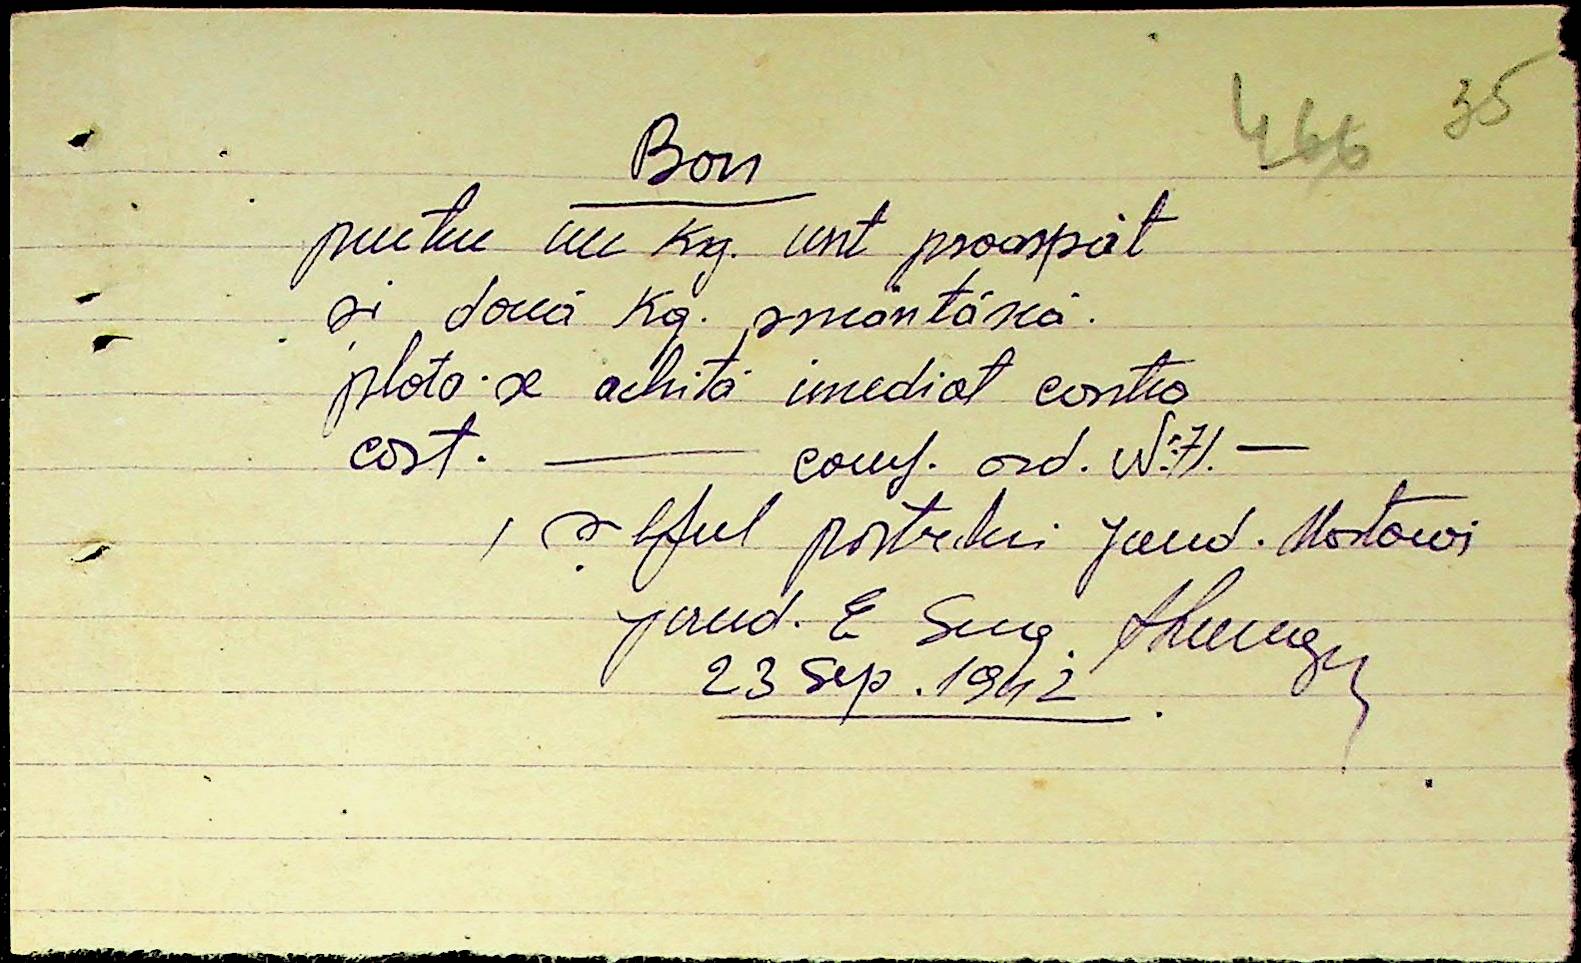 466 35
Bon
pentru un Kg. unt proaspăt
si două Kg. smântână.
plata se achită imediat contra
cost. — conf. ord. № 71. —
Șeful postului Jand. Mostowoi
jand. E
23 Sep. 1942